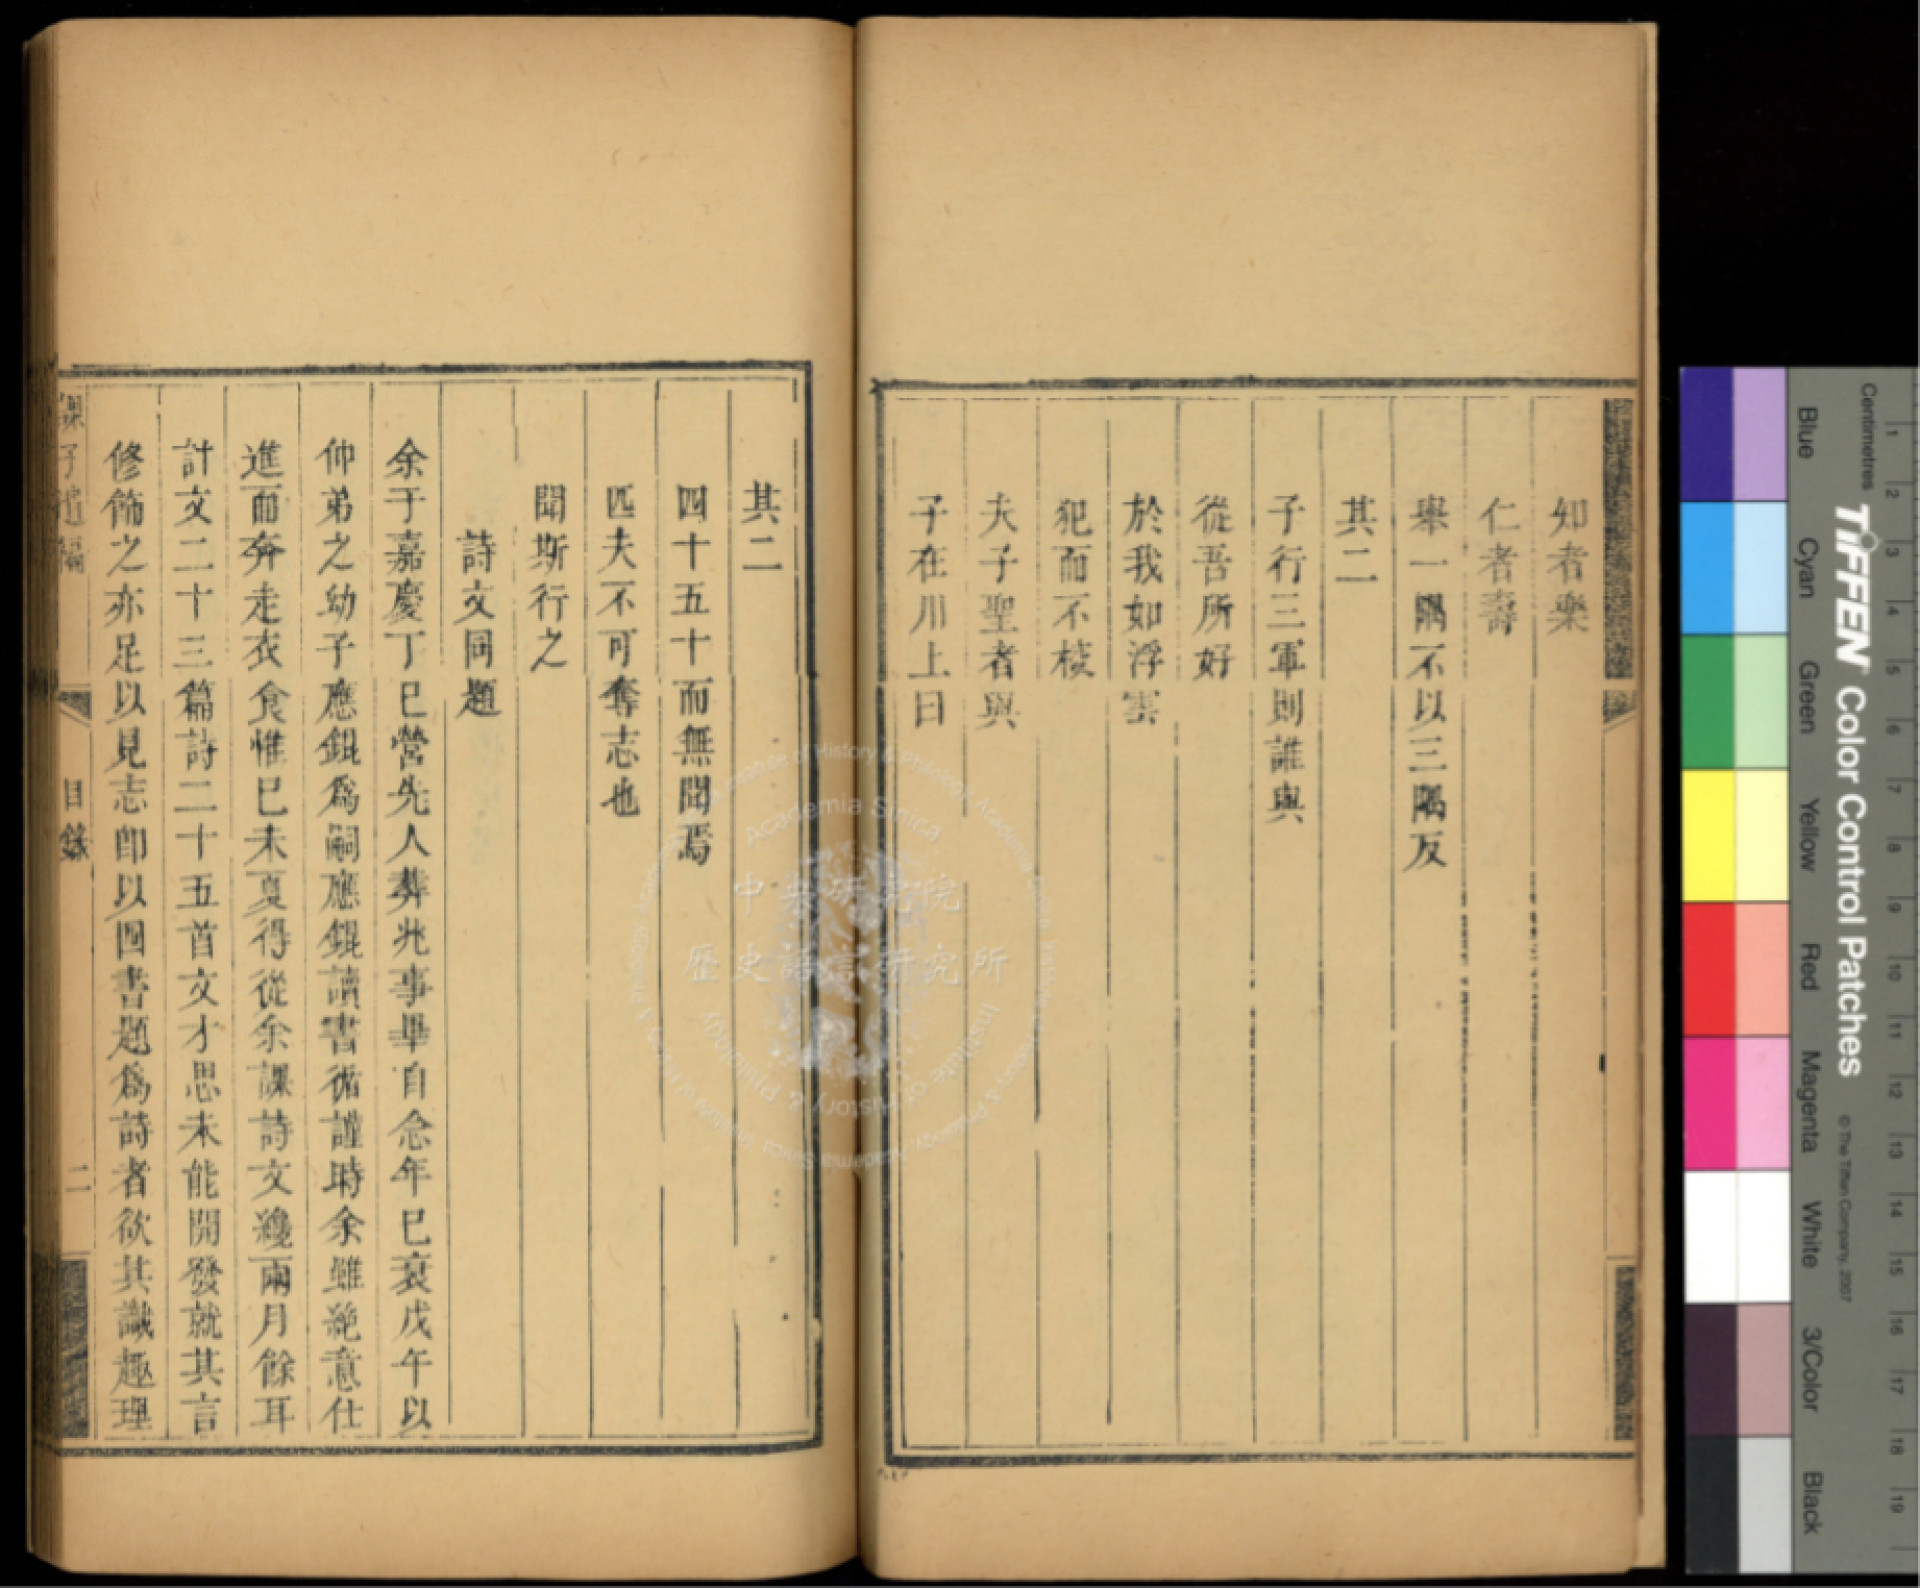 知者樂
仁者壽
舉一隅不以三隅反
其二
子行三軍則誰與
從吾所好
於我如浮雲
犯而不校
夫子聖者與
子在川上曰
其二
四十五十而無聞焉
匹夫不可奪志也
聞斯行之
詩文同題
余于嘉慶丁巳營先人葬兆事畢自念年已衰戊午以
仲弟之幼子應錕爲嗣應錕讀書循謹時余雖絶意仕
進而奔走衣食惟已未夏得從余課詩文纔兩月餘耳
計文二十三篇詩二十五首文才思未能開發就其言
修飾之亦足以見志卽以四書題爲詩者欲其識趣理
課子遺編
目錄
二
中央研究院
歷史語言研究所
Academia Sinica
Institute of History & Philology
Centimetres
TIFFEN Color Control Patches
© The Tiffen Company, 2007
Blue
Cyan
Green
Yellow
Red
Magenta
White
3/Color
Black
1 2 3 4 5 6 7 8 9 10 11 12 13 14 15 16 17 18 19